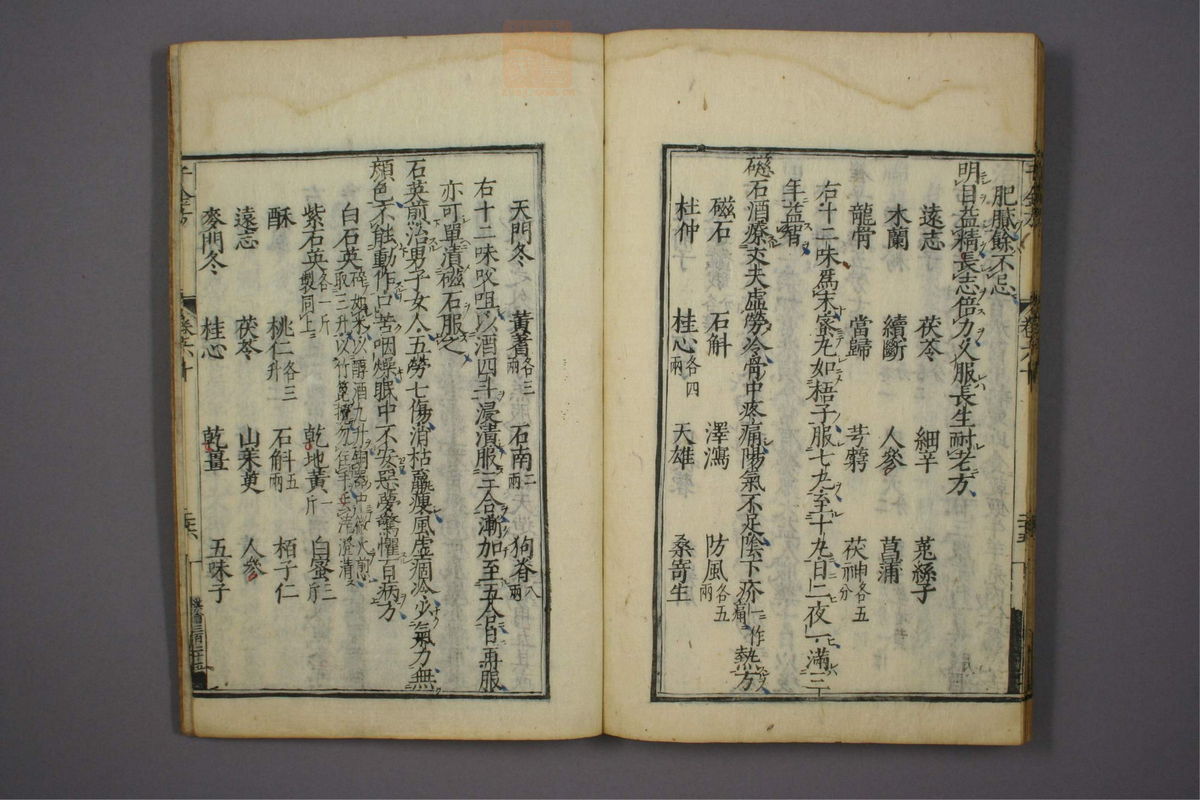 肥膩餘不忌
明目益精長志倍力久服長生耐老方
遠志 茯苓 細辛 菟絲子
木蘭 續斷 人參 菖蒲
龍骨 當歸 芎藭 茯神各五分
右十二味爲末蜜丸如梧子服七丸至十丸日二夜一滿三
年益智
磁石酒療丈夫虛勞冷骨中疼痛陽氣不足陰下疼一作痛熱方
磁石 石斛 澤瀉 防風各五兩
杜仲 桂心各四兩 天雄 桑寄生
天門冬 黃蓍各三兩 石南二兩 狗脊八兩
右十二味㕮咀以酒四斗浸漬服三合漸加至五合日再服
亦可單漬磁石服之
石英煎治男子女人五勞七傷消枯羸瘦風虛痼冷少氣力無
顏色不能動作口苦咽燥眠中不安惡夢驚懼百病方
白石英
紫石英各一斤製同上 乾地黃一斤 白蜜三斤
酥 桃仁各三升 石斛五兩 柏子仁
遠志 茯苓 山茱萸 人參
麥門冬 桂心 乾薑 五味子